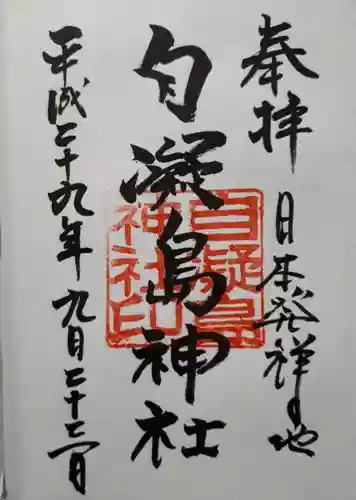 奉拝
日本発祥の地
自凝島神社
自凝島神社印
平成二十九年九月二十二日